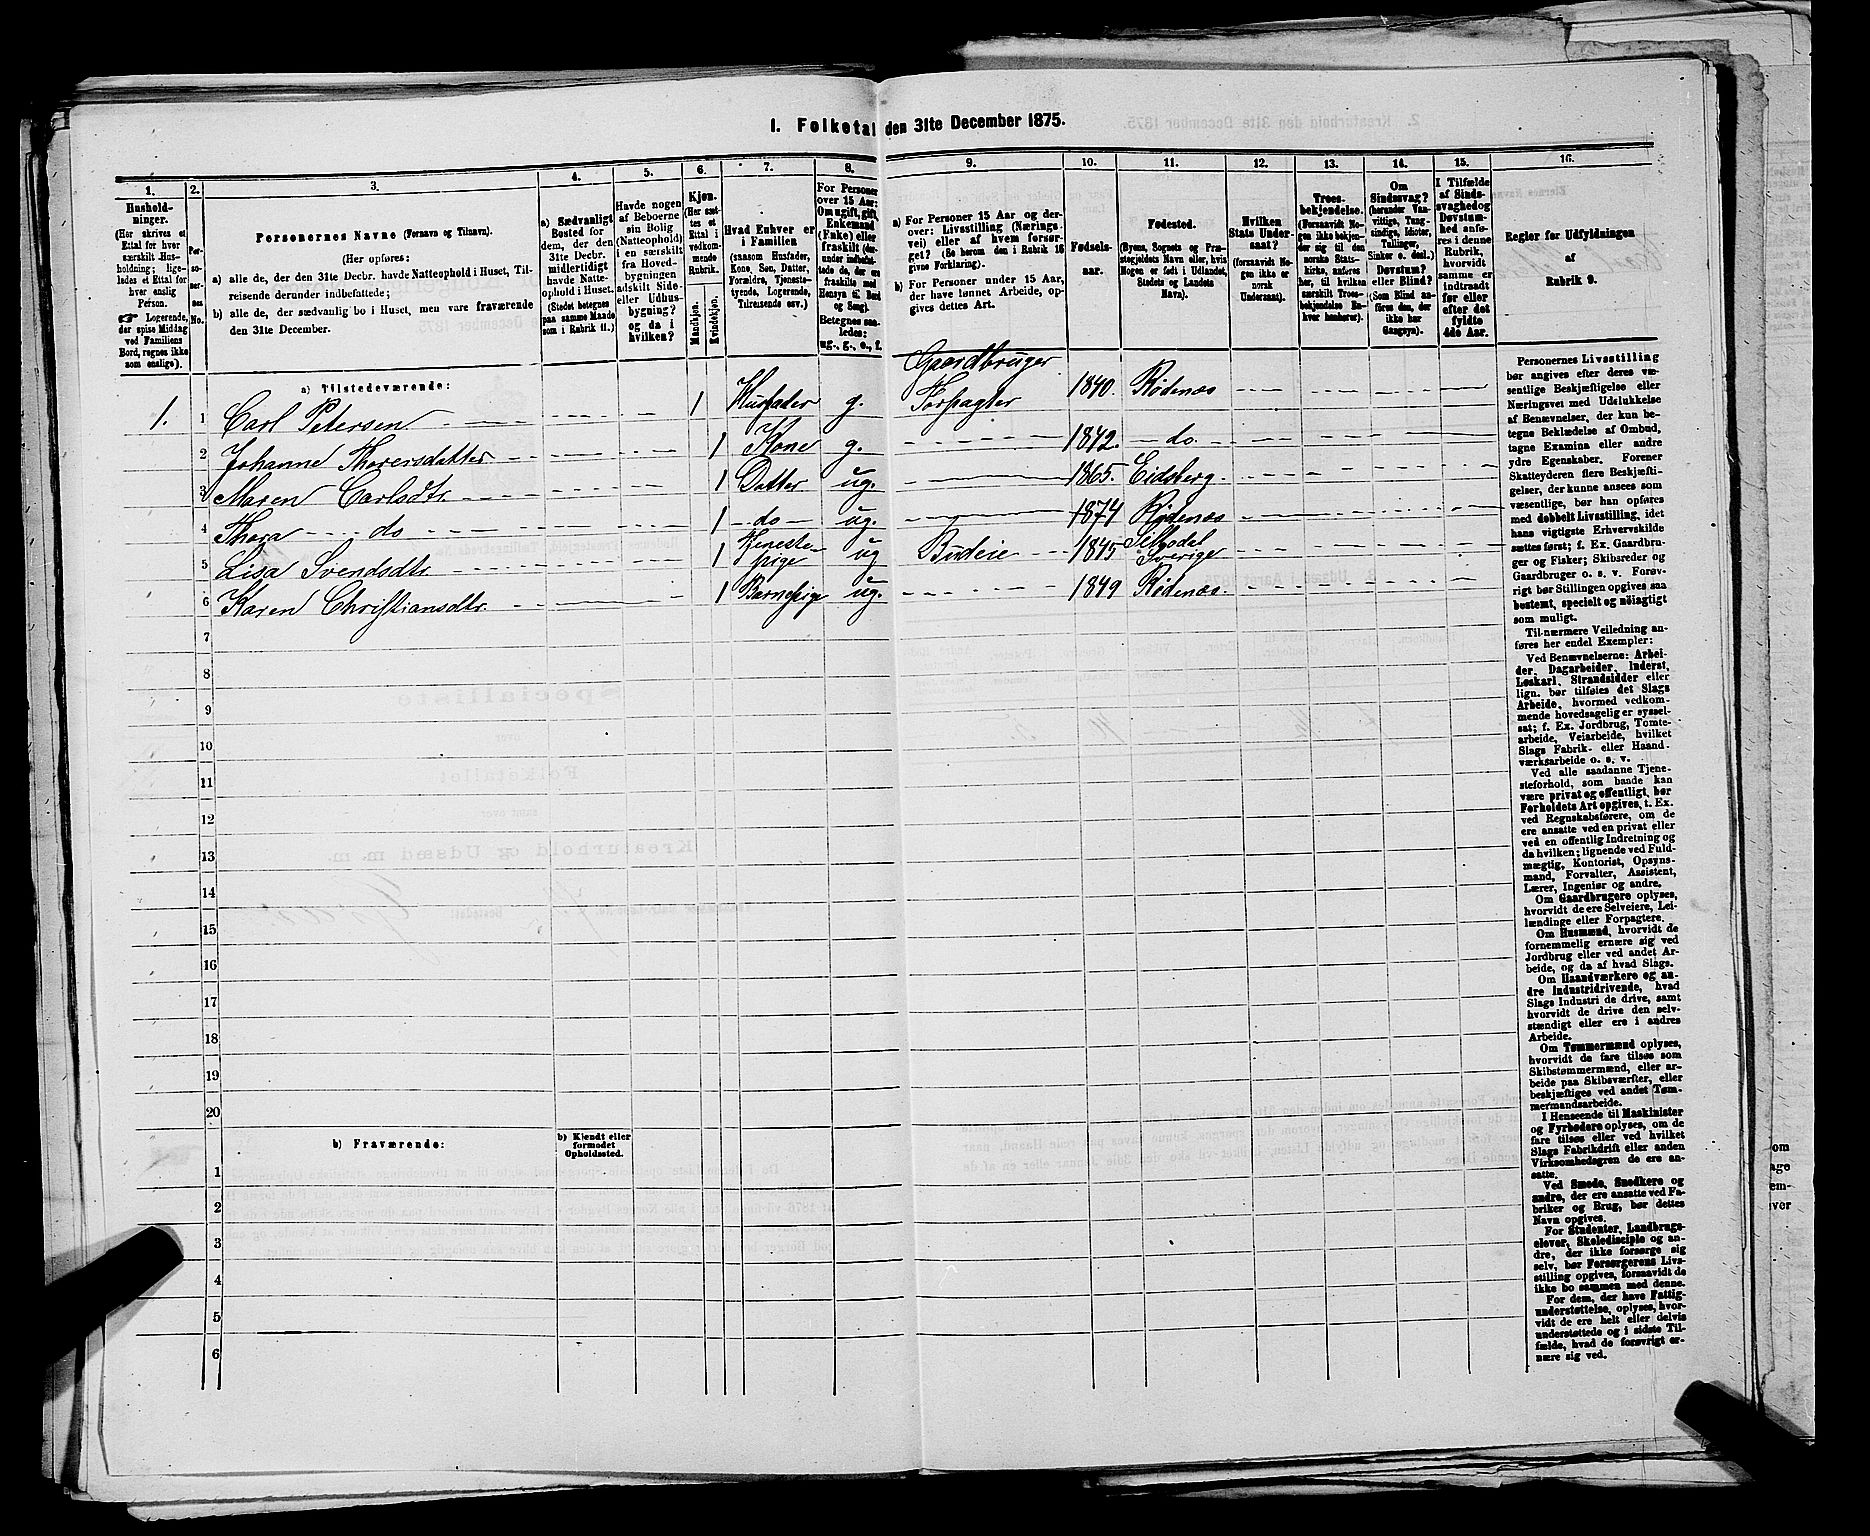 1. Folketal den 31te December 1875.
1.
2.
3.
4.
5.
6.
7.
8.
9.
10.
11.
12.
13.
14.
15.
16.
Hushold-
ninger.
(Her skrives et
Ettal for hver
særskilt Hus-
holdning; lige-
ledes et Ettal for
hver enslig
Person.
☞ Logerende,
der spise Middag
ved Familiens
Bord, regnes ikke
som enslige).
Per-
so-
ner-
nes
No.
Personernes Navne (Fornavn og Tilnavn).
(Her opføres:
a) alle de, der den 31te Decbr. havde Natteophold i Huset, Til-
reisende derunder indbefattede;
b) alle de, der sædvanlig bo i Huset, men vare fraværende
den 31te December.
a) Sædvanligt
Bosted for
dem, der den
31te Decbr.
midlertidigt
havde Natte-
ophold i Huset.
(Stedet betegnes
paa samme Maade
som i Rubrik 11.)
Havde nogen
af Beboerne
sin Bolig
(Natteophold)
i en særskilt
fra Hoved-
bygningen
adskilt Side-
eller Udhus-
bygning?
og da i
hvilken?
Kjøn.
(Her sæt-
tes et
Ettal i
vedkom-
mende
Rubrik.
Mandkjøn.
Kvindekjøn.
Hvad Enhver er
i Familien
(saasom Husfader,
Kone, Søn, Datter,
Forældre, Tjeneste-
tyende, Logerende,
Tilreisende osv.)
For Personer
over 15 Aar:
Om ugift, gift,
Enkemand
(Enke) eller
fraskilt (der-
under indbefat-
tede de, der ere
fraskilte med
Hensyn til Bord
og Seng).
Betegnes saa-
ledes:
ug., g., e., f.
a) For Personer 15 Aar og der-
over: Livsstilling (Nærings-
vei) eller af hvem forsør-
get? (Se herom den i Rubrik 16
givne Forklaring).
b) For Personer under 15 Aar,
der have lønnet Arbeide, op-
gives dettes Art.
Fødsels-
aar.
Fødested.
(Byens, Sognets og Præ-
stegjeldets Navn eller, hvis
Nogen er født i Udlandet,
Stedets og Landets
Navn).
Hvilken
Stats Under-
saat?
(forsaavidt No-
gen ikke er
norsk
Undersaat).
Troes-
bekjendelse.
(Forsaavidt No-
gen ikke bekjen-
der sig til den
norske Stats-
kirke, anføres
her, til hvilken
særskilt Troes-
bekjendelse En-
hver henhører).
Om
Sindssvag?
(herunder Van-
vittige, Tung-
sindige, Idioter,
Tullinger,
Sinker o. desl.)
Døvstum?
eller Blind?
(Som Blind an-
føres den, der
ikke har
Gangsyn).
I Tilfælde
af Sinds-
svaghed og
Døvstum-
hed anfø-
res i denne
Rubrik,
hvorvidt
samme er
indtraadt
før eller
efter det
fyldte
4de Aar.
Regler for Udfyldningen
af
Rubrik 9.
a) Tilstedeværende:
Gaardbruger
1. 1 Carl Petersen 1 Husfader g. Forpagter 1840. Rødenæs
2 Johanne Thoresdatter 1 Kone g. 1842. do
3 Maren Carlsdtr. 1 Datter ug. 1865. Eidsberg
4 Thora do 1 do ug. 1874 Rødenæs
5 Lisa Svendsdtr. 1 Tjeneste-
pige ug Budeie 1845 Sverige
6 Karen Christiansdtr. 1 Barnepige ug. 1849 Rødenæs
7
8
9
10
11
12
13
14
15
16
17
18
19
20
b) Fraværende:
b) Kjendt eller
formodet
Opholdssted.
1
2
3
4
5
6
Personernes Livsstilling
bør angives efter deres væ-
sentlige Beskjæftigelse eller
Næringsvei med Udelukkelse
af Benævnelser, der kun be-
tegne Beklædelse af Ombud,
tagne Examina eller andre
ydre Egenskaber. Forener
Skatteyderen flere Beskjæfti-
gelser, der kunne ansees som
væsentlige, bør han opføres
med dobbelt Livsstilling, idet
hans vigtigste Erhvervskilde
sættes først; f. Ex. Gaardbru-
ger og Fisker; Skibsreder og
Gaardbruger o. s. v. Forøv-
rigt bør Stillingen opgives saa
bestemt, specielt og nøiagtigt
som muligt.
Til nærmere Veiledning an-
føres her endel Exempler:
Ved Benævnelserne: Arbei-
der, Dagarbeider, Inderst,
Løskarl, Strandsidder eller
lign. bør tilføies det Slags
Arbeide, hvormed vedkom-
mende hovedsagelig er syssel-
sat; f. Ex. Jordbrug, Tomte-
arbeide, Veiarbeide, hvilket
Slags Fabrik- eller Haand-
værksarbeide o. s. v.
Ved alle saadanne Tjene-
steforhold, som baade kan
være privat og offentligt, bør
Forholdets Art opgives, t. Ex.
ved Regnskabsførere, om de
ere ansatte ved en privat eller
ved en offentlig Indretning og
da hvilken; lignende ved Fuld-
mægtig, Kontorist, Opsyns-
mand, Forvalter, Assistent,
Lærer, Ingeniør og andre.
Om Gaardbrugere oplyses,
hvorvidt de ere Selveiere, Lei-
lændinge eller Forpagtere.
Om Husmænd, hvorvidt de
fornemmelig ernære sig ved
Jordbrug eller ved andet Ar-
beide, og da af hvad Slags.
Om Haandværkere og an-
dre Industridrivende, hvad
Slags Industri de drive, samt
hvorvidt de drive den selv-
stændigt eller ere i andres
Arbeide.
Om Tømmermænd oplyses,
hvorvidt de fare tilsøs som
Skibstømmermænd, eller ar-
beide paa Skibsværfter, eller
beskjæftiges ved andet Tøm-
mermandsarbeide.
I Henseende til Maskinister
og Fyrbødere oplyses, om de
fare tilsøs eller ved hvilket
Slags Fabrikdrift eller anden
Virksomhedsgren de ere an-
satte.
Ved Smede, Snedkere og
andre, der ere ansatte ved Fa-
briker og Brug, bør dettes
Navn opgives.
For Studenter, Landbrugs-
elever, Skoledisciple og an-
dre, der ikke forsørge sig
selv, bør Forsørgerens Livs-
stilling opgives, forsaavidt de
ikke bo sammen med denne.
For dem, der have Fattig-
understøttelse, oplyses, hvor-
vidt de ere helt eller delvis
understøttede og i sidste Til-
fælde, hvad de forøvrigt er-
nære sig ved.